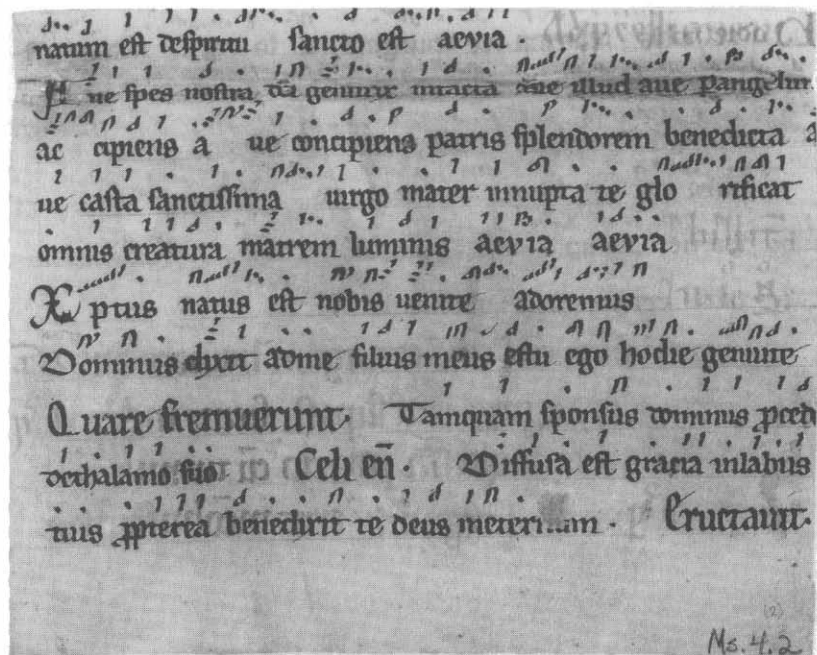 natum est despiritu sancto est aevia .
Ave spes nostra dei genitrix intacta ave illud ave p angelum
ac cipiens a ve concipiens patris splendorem benedicta a
ue casta sanctissima uirgo mater innupta te glo rificat
omnis creatura matrem luminis aevia aevia
Xp̄tus natus est nobis uenite adoremus
Dominus dixit adme filius meus estu ego hodie genuite
Quare fremuerunt. Tamquam sponsus dominus p̄ced
dethalamo suo Celi en̄ . Diffusa est gracia inlabiis
tuis ꝓpterea benedixit te deus meternum . Eructauit.
(2)
Ms. 4. 2